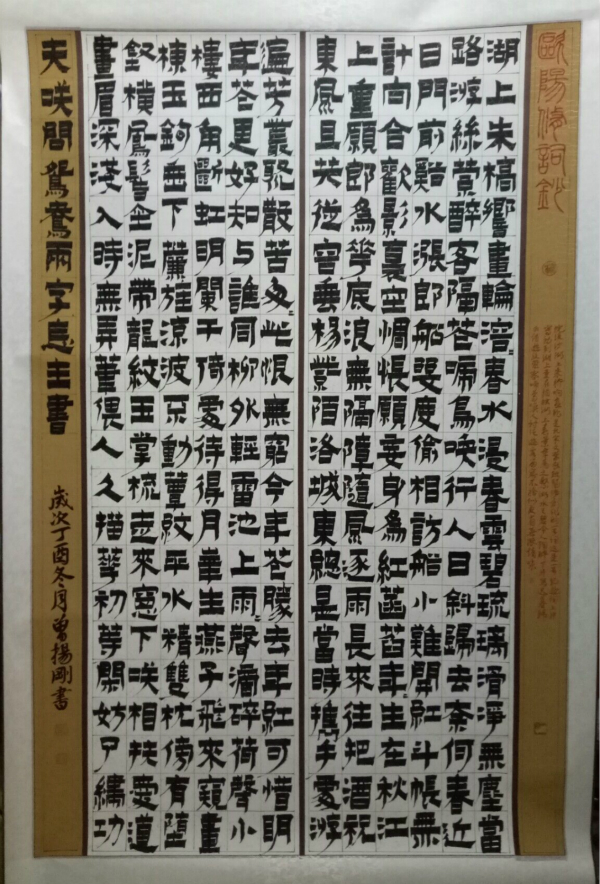 歐陽脩詞鈔
湖上朱橋響畫輪溶〻春水浸春雲碧琉璃滑淨無塵當
路游絲縈醉客隔花啼鳥喚行人日斜歸去柰何春近
日門前谿水漲郎船幾度偷相訪船小難開紅斗帳無
計向合歡影裏空惆悵願妾身為紅菡萏年〻生在秋江
上重願郎為花底浪無隔障隨風逐雨長來往把酒祝
東風且共從容垂楊紫陌洛城東總是當時攜手處游
遍芳叢聚散苦匆〻此恨無窮今年花勝去年紅可惜明
年花更好知与誰同柳外輕雷池上雨〻聲滴碎荷聲小
樓西角斷虹明闌干倚處待得月華生燕子飛來窺畫
棟玉鉤垂下簾旌涼波不動簟紋平水精雙枕傍有墮
釵橫鳳髻金泥帶龍紋玉掌梳走來窗下咲相扶愛道
畫眉深淺入時無弄筆偎人久描花初等閑妨了繡功
夫咲問鴛鴦兩字怎生書
歲次丁酉冬月曾揚剛書